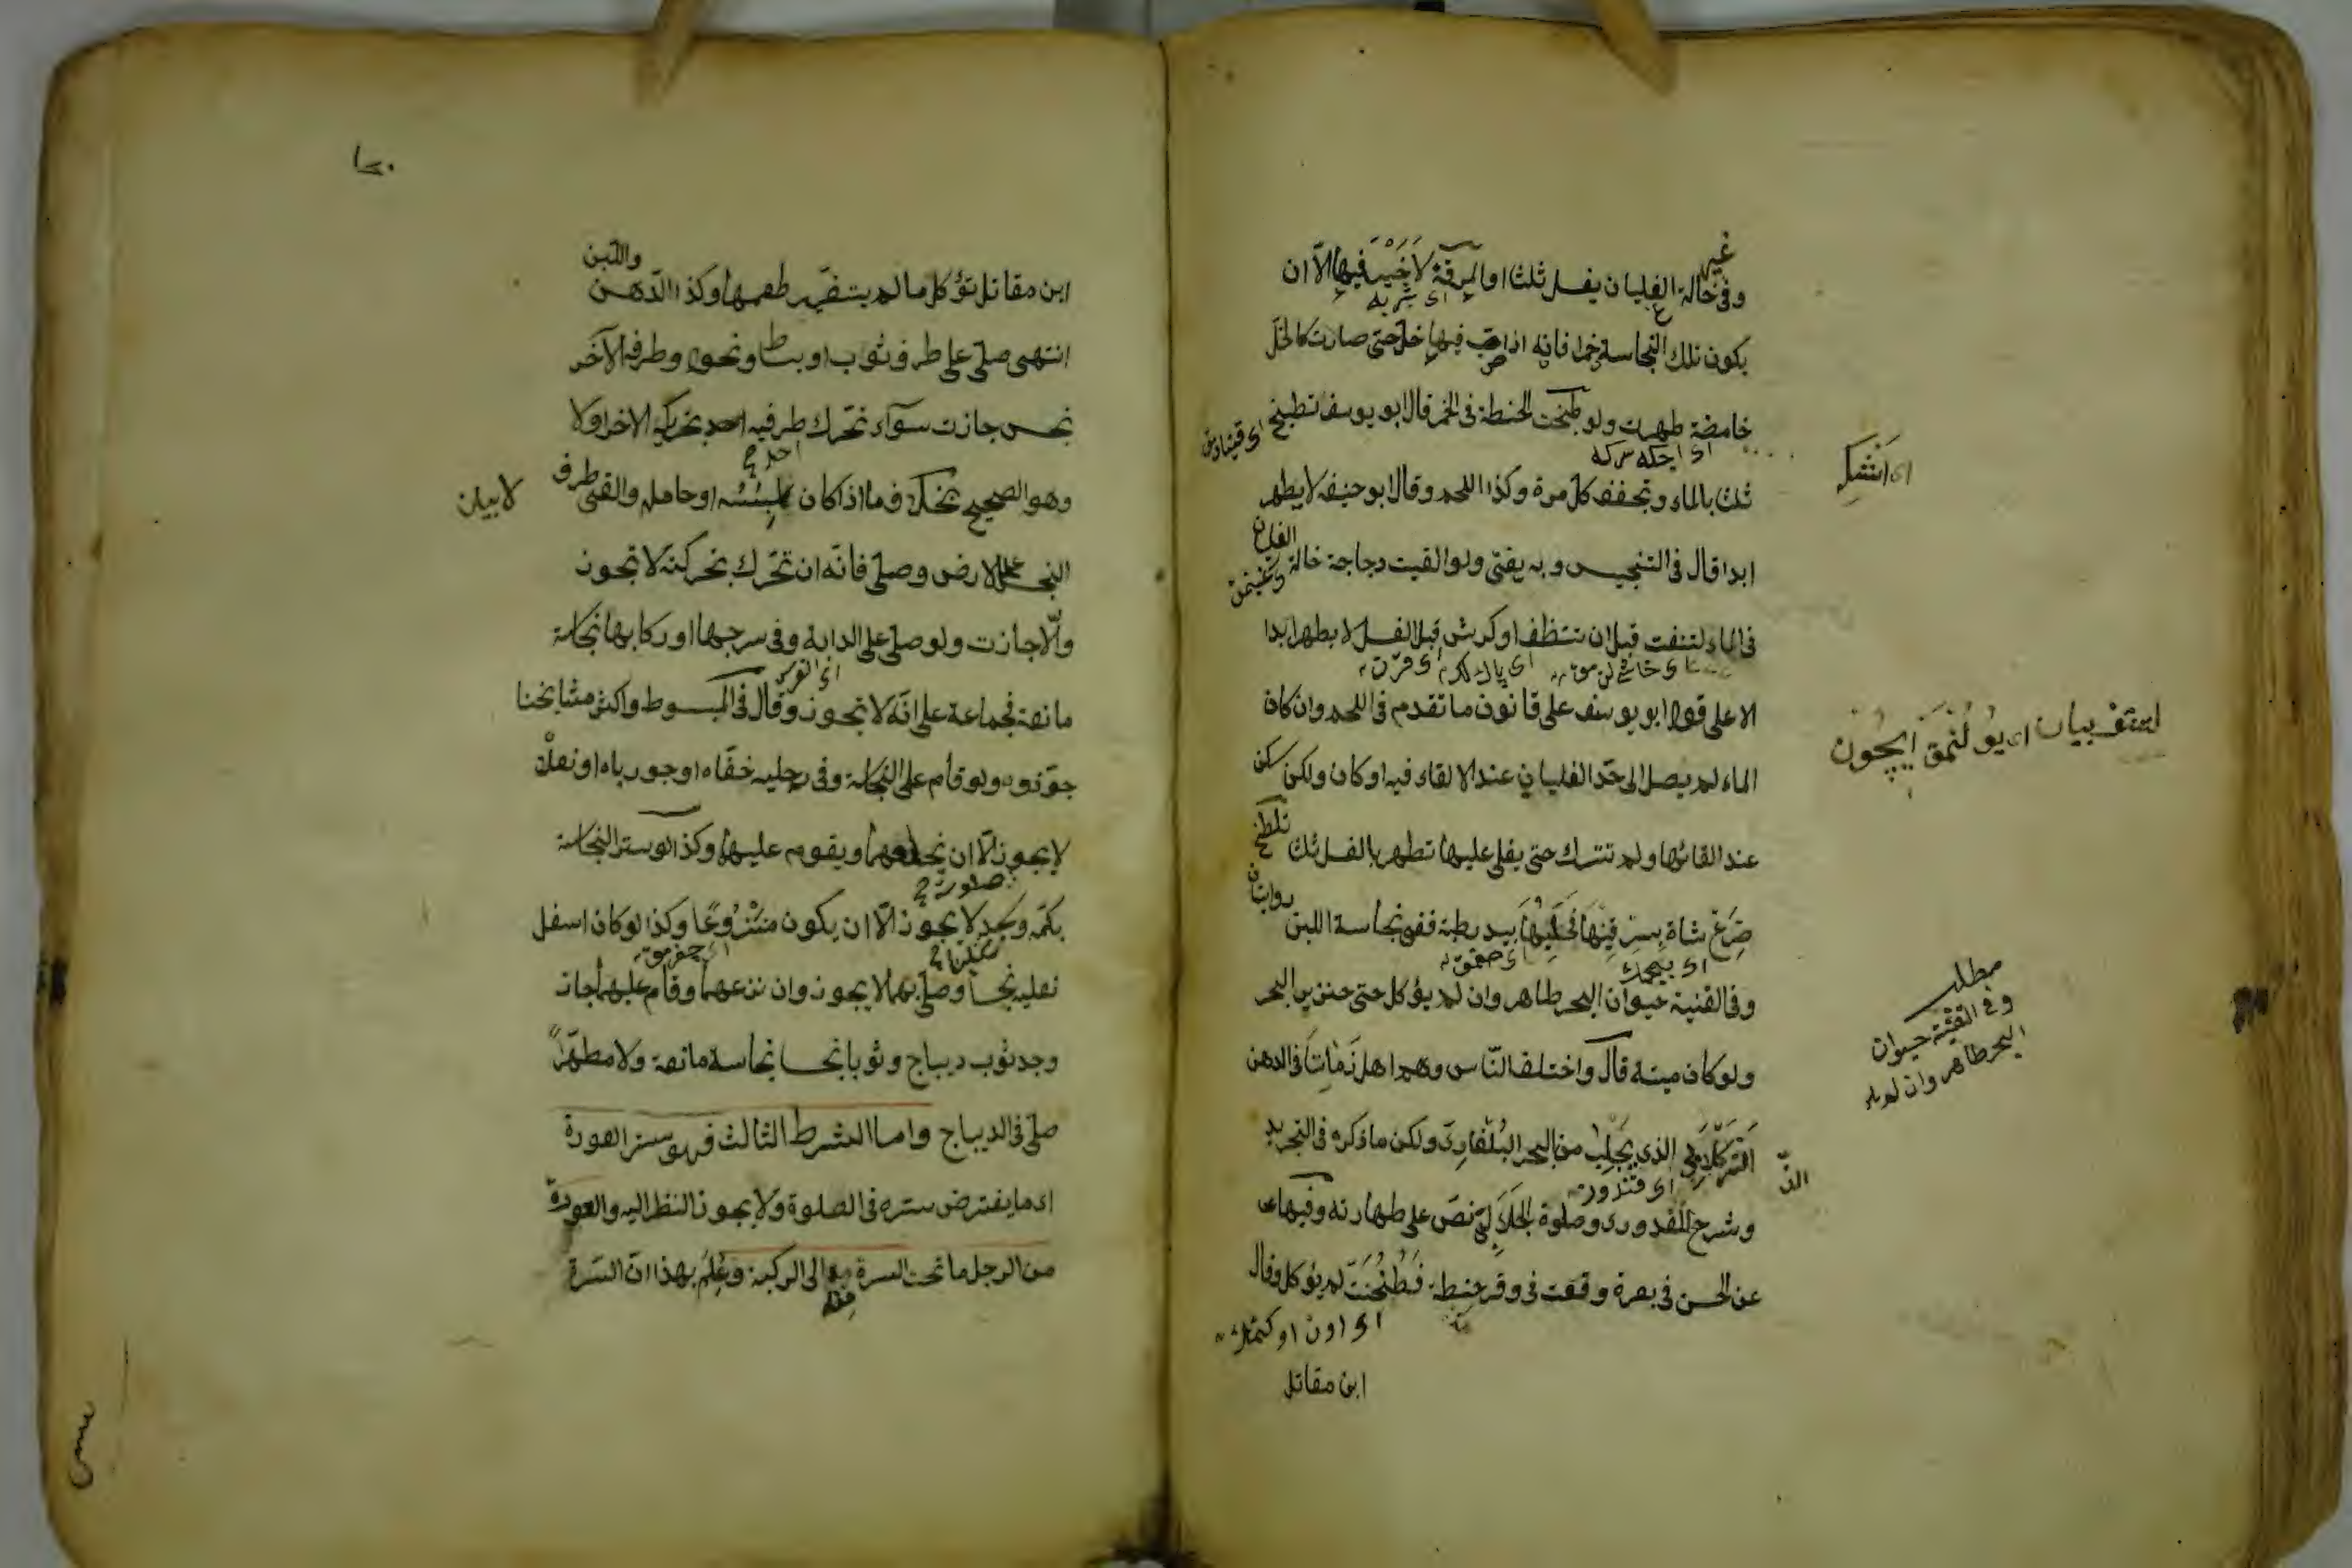 وفى غير حالة الغليان يغسل ثلثا والمرقة لا خير فيها الا ان
اى شربه
يكون تلك النجاسة خمرا فانه اذا صب فيها خل حتى صارت كالخل
حامضة طهرت ولو طبخت الحنطة فى الخمر قال ابو يوسف تطبخ
اى اجكه سركه
ثلثا بالماء وتجفف كل مرة وكذا اللحم وقال ابو حنيفه لا يطهر
ابدا قال فى التنجيس وبه يفتى ولو القيت دجاجة حالة الغليان
فى الماء لتنتف قبل ان تنظف او كرش قبل الغسل لا يطهر ابدا
الا على قول ابو يوسف على قانون ما تقدم فى اللحم وان كان
الماء لم يصل الى حد الغليان عند الالقاء فيه او كان ولكن سكن
عند القائها ولم تترك حتى يغلى عليها تطهر بالغسل ثلثا تلطخ
ضرع شاة بسرقينها فحلبها بيد رطبة ففى نجاسة اللبن روايتان
وفى القنية حيوان البحر طاهر وان لم يؤكل حتى خنزير البحر
ولو كان ميتة قال واختلف الناس وهم اهل زماننا فى الدهن
الذى يجلب من البحر البلغارى ولكن ما ذكره فى التجريد
اى قندور
وشرح القدورى وصلوة الجلابى نص على طهارته وفيها عن
عن الحسن فى بعرة وقعت فى وقر حنطة فطحنت لم يؤكل وقال
ابن مقاتل
مطلب
وفى القنية حيوان
البحر طاهر وان لم
ابن مقاتل تؤكل ما لم يتغير طعمها وكذا الدهن واللبن
انتهى صلى على طرف ثوب او بساط ونحوه وطرفه الآخر
نجس جازت سوآء تحرك طرفيه احد بتحريك الاخر اولا
احد
وهو الصحيح بخلاف ما اذا كان لابسه او حامله والقى طرف
لا بيان
النجس على الارض وصلى فانه ان تحرك بحركته لا تجوز
والا جازت ولو صلى على الدابة وفى سرجها او ركابها نجاسة
مانعة فجماعة على انه لا تجوز وقال فى المبسوط واكثر مشايخنا
جوزوه ولو قام على النجاسة وفى رجليه خفاه او جورباه او نعلاه
لا يجوز الا ان يخلعهما ويقوم عليها وكذا لو ستر النجاسة
صلوته
بكمه وسجد لا يجوز الا ان يكون منزوعا وكذا لو كان اسفل
نعليه نجسا وصلى بهما لا يجوز وان نزعهما وقام عليهما جاز
وجد ثوب ديباج وثوبا نجسا نجاسة مانعة ولا مطهرا
صلى فى الديباج واما الشرط الثالث فهو ستر العورة
اى ما يفترض ستره فى الصلوة ولا يجوز النظر اليه والعورة
من الرجل ما تحت السرة الى الركبة وعلم بهذا ان السرة